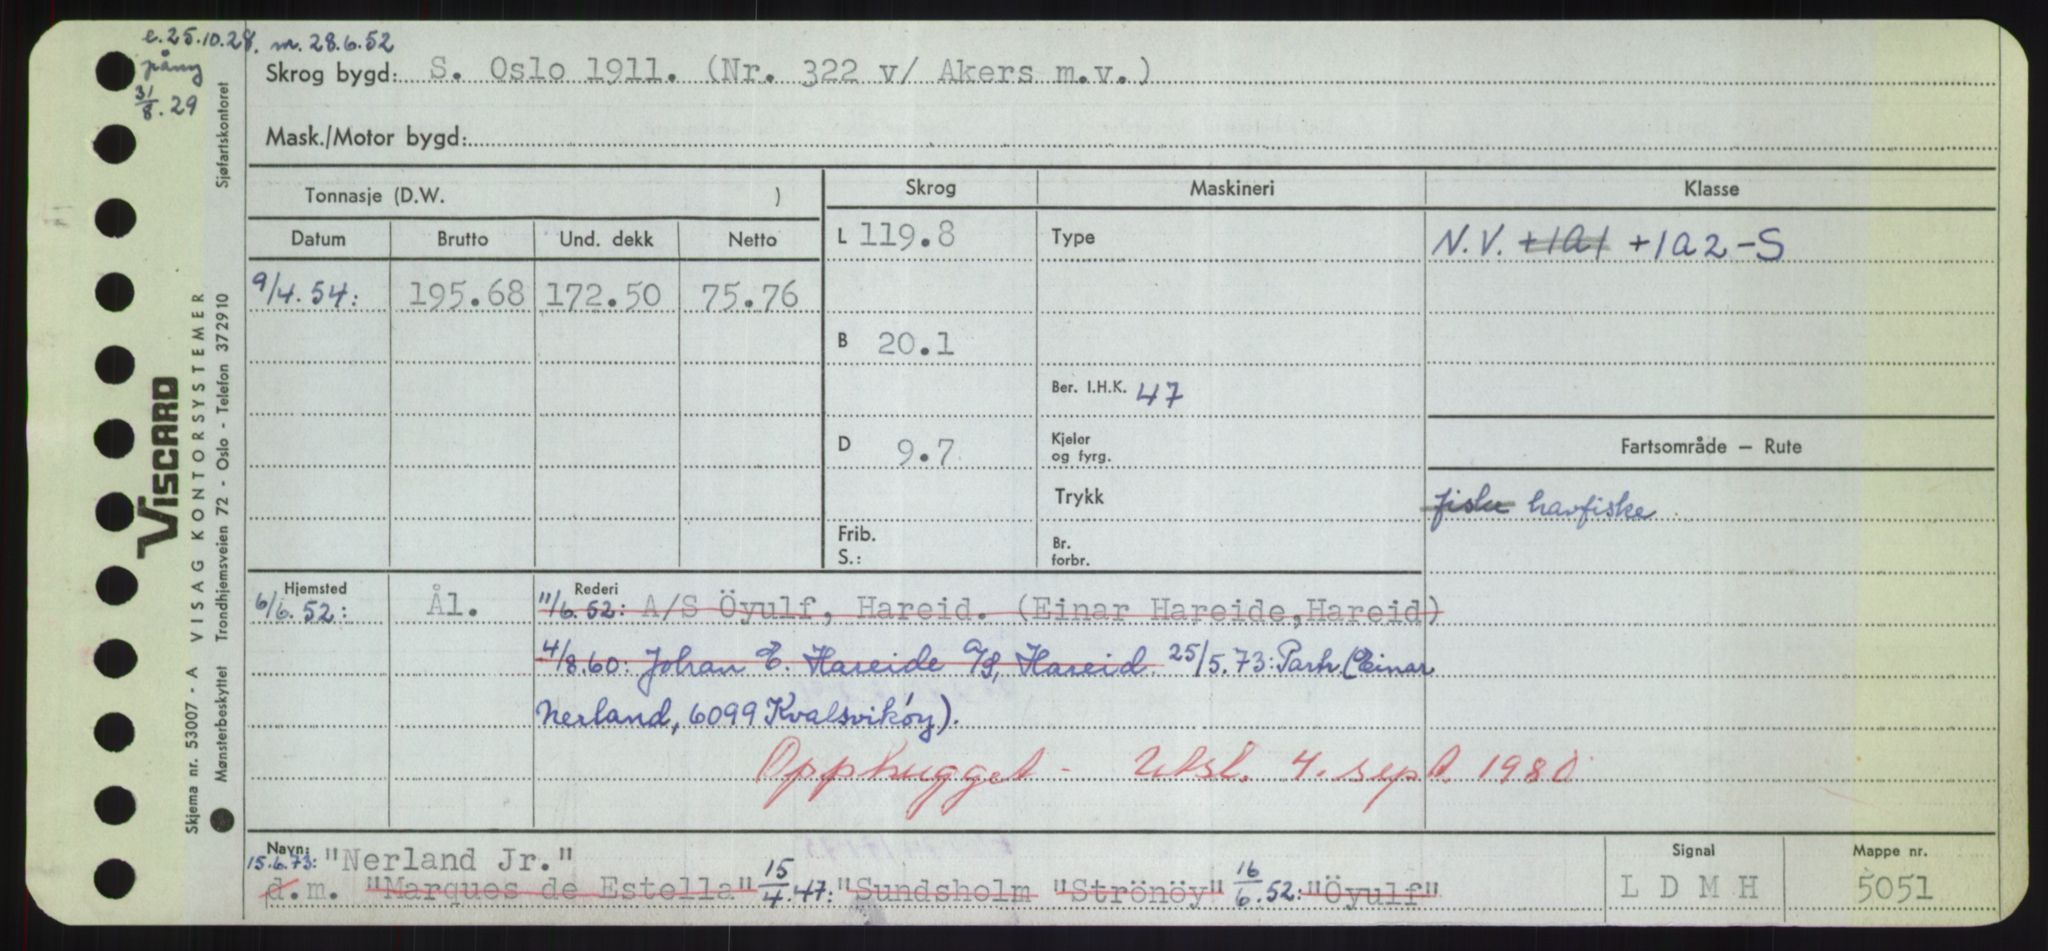 e. 25.10.28. nr. 28.6.52
påny
31/8.29
Skrog bygd: S. Oslo 1911. (Nr. 322 v/ Akers m.v.)
Mask./Motor bygd:
Tonnasje (D.W. )
Skrog
Maskineri
Klasse
Datum
Brutto
Und. dekk
Netto
L 119.8
Type
N.V. +1A1 +1A2-S
9/4.54:
195.68
172.50
75.76
B 20.1
Ber. I.H.K. 47
D 9.7
Kjeler
og fyrg.
Fartsområde — Rute
Trykk
fiske havfiske
Frib.
S.:
Br.
forbr.
Hjemsted
Rederi
6/6.52: Ål. 11/6.52: A/S Öyulf, Hareid. (Einar Hareide, Hareid)
4/8.60: Johan E. Hareide A/S, Hareid. 25/5.73: Partr. (Einar
Nerland, 6099 Kvalsvikøy).
Opphugget - Utsl. 4. sept. 1980
Navn:
15.6.73: "Nerland Jr."
d.m. "Marques de Estella" 15/4.47: "Sundsholm "Strönöy" 16/6.52: "Öyulf"
Signal
L D M H
Mappe nr.
5051
VISCARD
Skjema nr. 53007 - A VISAG KONTORSYSTEMER
Mønsterbeskyttet Trondhjemsveien 72 - Oslo - Telefon 372910 Sjøfartskontoret